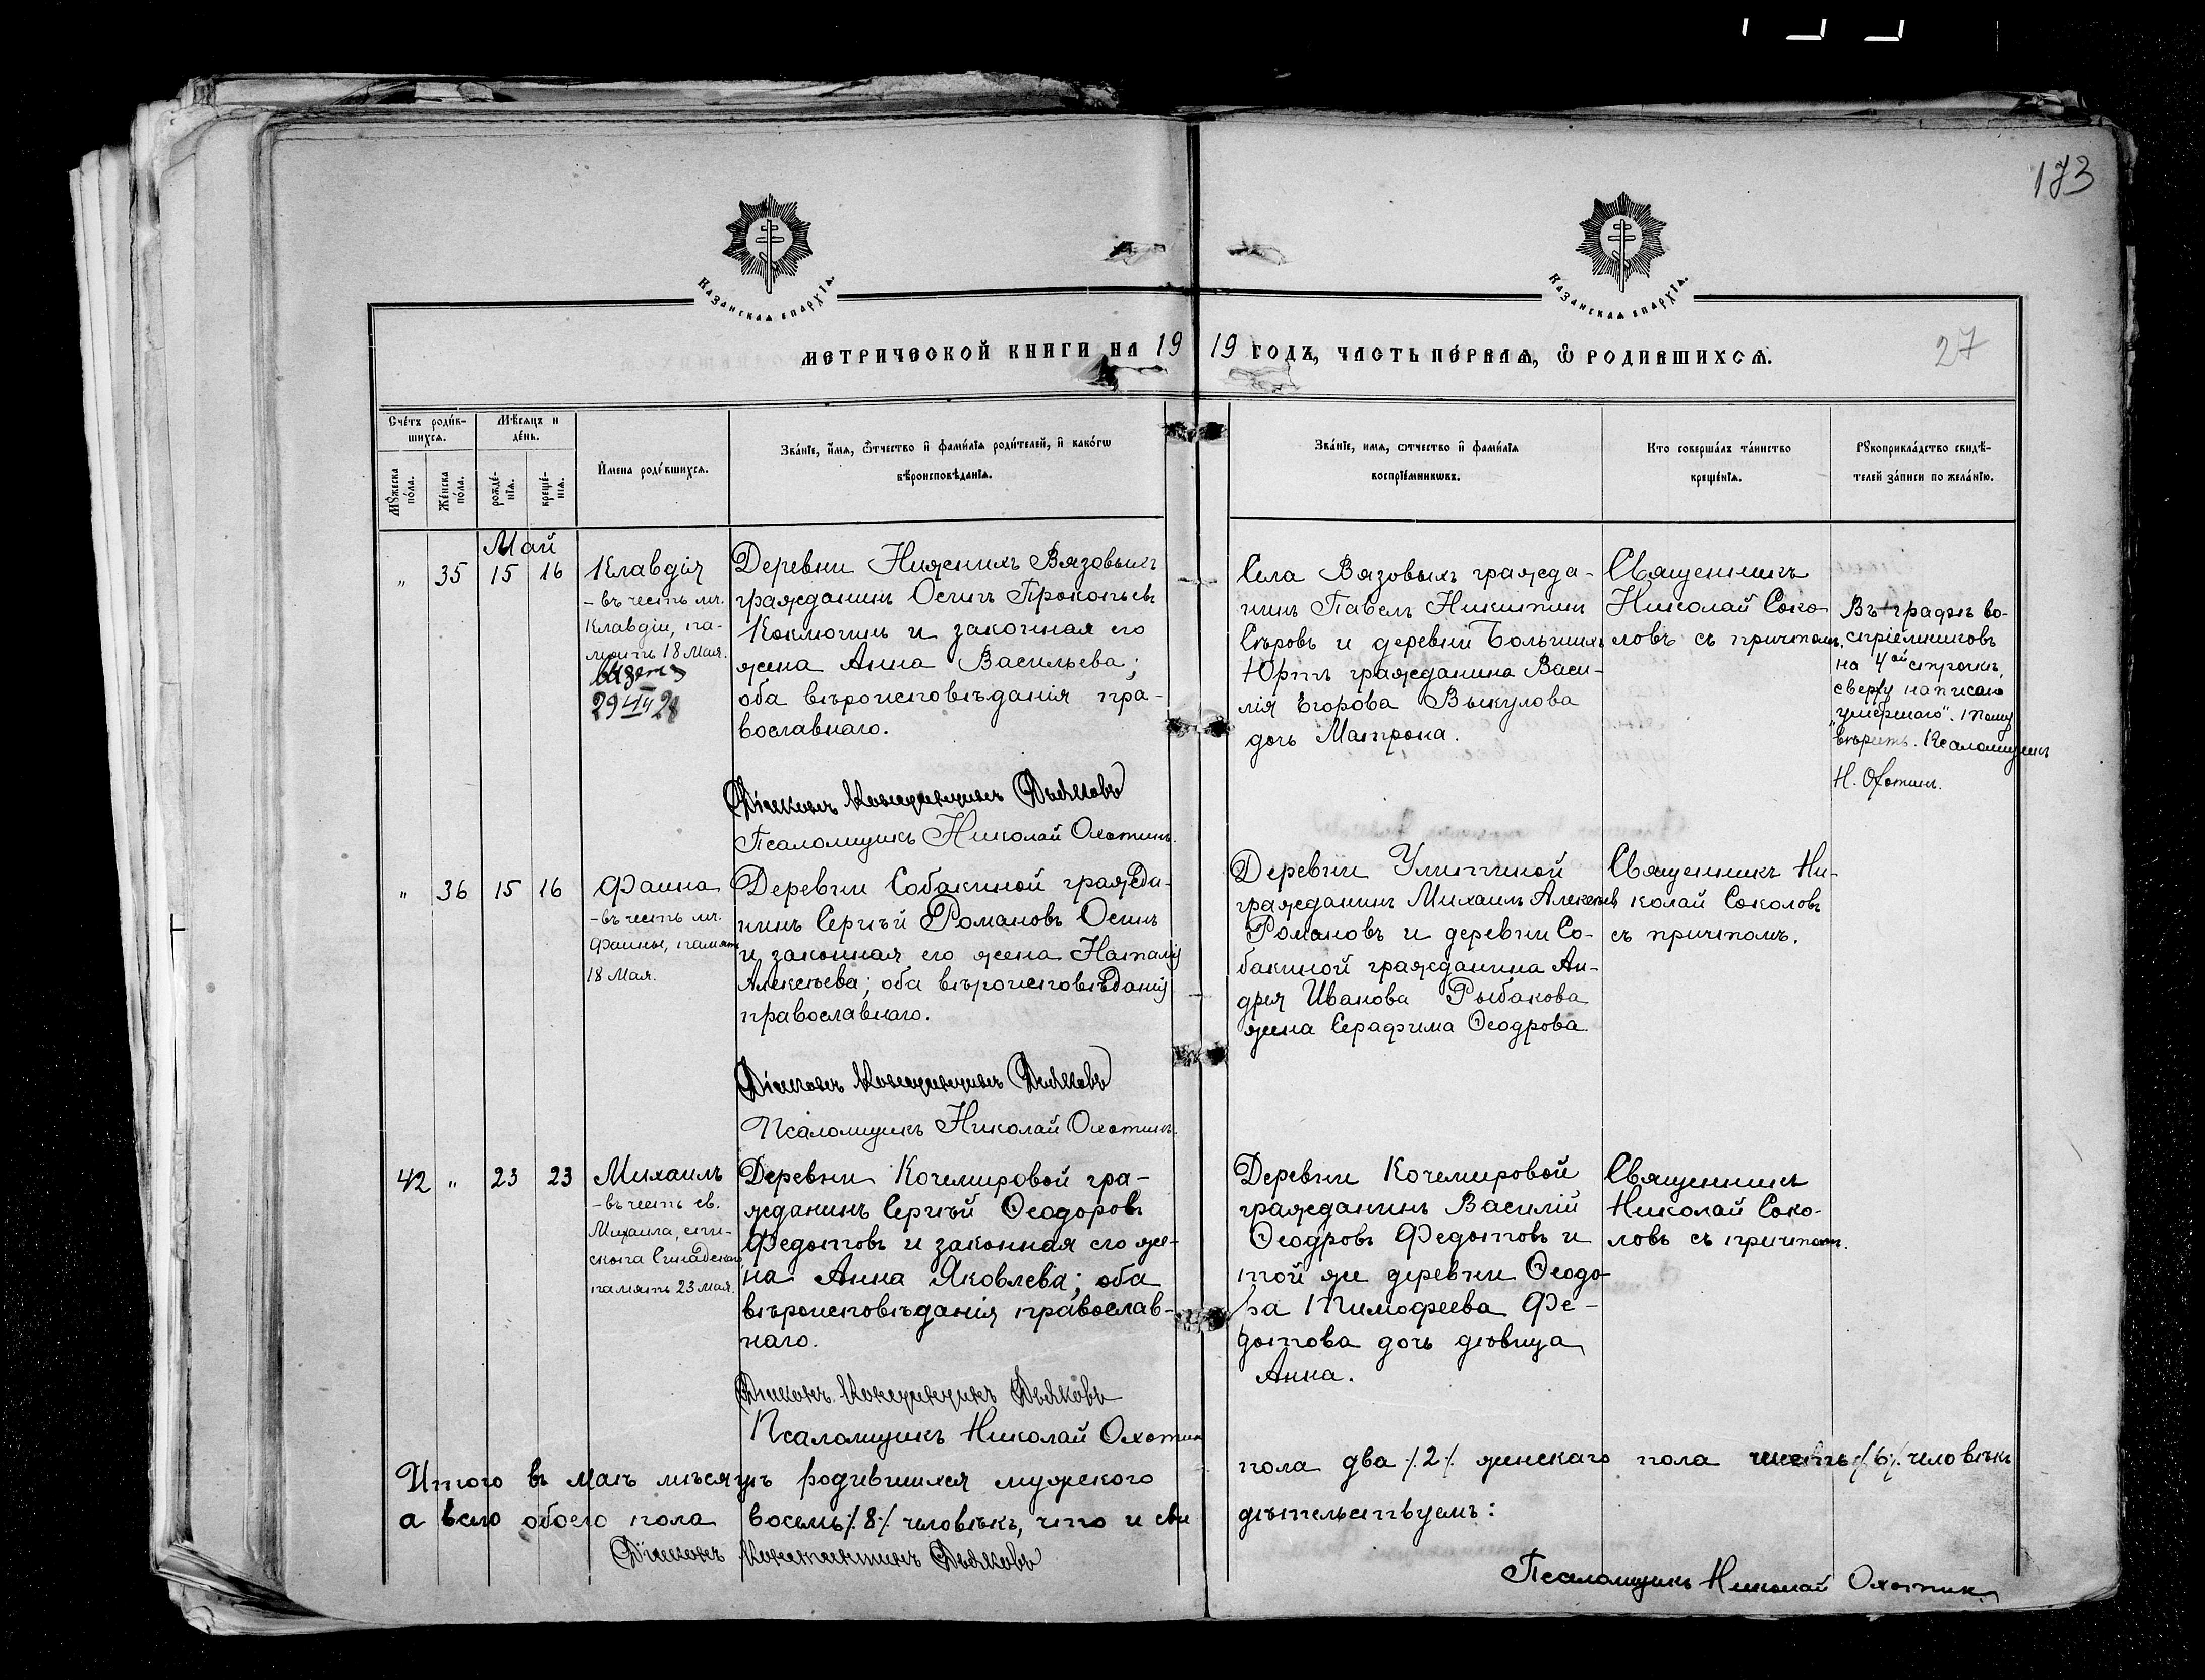 173
Казанская епархія.
Казанская епархія.
Метрической книги на 1919 годъ, часть первая, ѿ родившихся.
27
Счетъ родив-
шихся.
Мѣсяцъ и
день.
Мужеска
пола.
Женска
пола.
рожде-
нія.
креще-
нія.
Имена родившихся.
Званіе, имя, ѿтчество и фамилія родителей, и какогѡ
вѣроисповѣданія.
Званіе, имя, ѿтчество и фамилія
воспріемникѡвъ.
Кто совершалъ таинство
крещенія.
Рукоприкладство свидѣ-
телей записи по желанію.
Май
" 35 15 16
Клавдія
- въ честь мч.
Клавдіи, па-
мять 18 Мая.
29 28
Деревни Нижнихъ Вязовыхъ
гражданинъ Осипъ Прокопьевъ
Кокмогинъ и законная его
жена Анна Васильева;
оба вѣроисповѣданія пра-
вославнаго.
Діаконъ Константинъ Дьяковъ
Псаломщикъ Николай Охотинъ.
Села Вязовыхъ гражда-
нинъ Павелъ Никитинъ
Сѣровъ и деревни Большихъ
Юртъ гражданина Васи-
лія Егорова Викулова
дочь Матрона.
Священникъ
Николай Соко-
ловъ съ причтомъ.
Въ графѣ во-
спріемниковъ
на 4ой строкѣ
сверху написано
"умершаго". Тому
вѣрить. Псаломщикъ
Н. Охотинъ.
" 36 15 16
Фаина
- въ честь мч.
Фаины, память
18 Мая.
Деревни Собакиной гражда-
нинъ Сергѣй Романовъ Осинъ
и законная его жена Наталія
Алексѣева; оба вѣроисповѣданія
православнаго.
Діаконъ Константинъ Дьяковъ
Псаломщикъ Николай Охотинъ.
Деревни Улитиной
гражданинъ Михаилъ Алексѣевъ
Романовъ и деревни Со-
бакиной гражданина Ан-
дрея Иванова Рыбакова
жена Серафима Ѳеодрова
Священникъ Ни-
колай Соколовъ
съ причтомъ.
42 " 23 23
Михаилъ
- въ честь св.
Михаила, епи-
скопа Синадскаго,
память 23 мая.
Деревни Кочемировой гра-
жданинъ Сергѣй Ѳеодоровъ
Федотовъ и законная его же-
на Анна Яковлева; оба
вѣроисповѣданія православ-
наго.
Діаконъ Константинъ Дьяковъ
Псаломщикъ Николай Охотинъ
Деревни Кочемировой
гражданинъ Василій
Ѳеодровъ Федотовъ и
той же деревни Ѳеодо-
ра Тимофеева Фе-
дотова дочь дѣвица
Анна.
Священникъ
Николай Соко-
ловъ съ причтом.
Итого въ маѣ мѣсяцѣ родившихся мужского пола два /.2./ женскаго пола шесть /.6./. человѣкъ
а всего обоего пола восемь /.8./. человѣкъ, что и сви дѣтельствуемъ:
Діаконъ Константинъ Дьяковъ
Псаломщикъ Николай Охотинъ